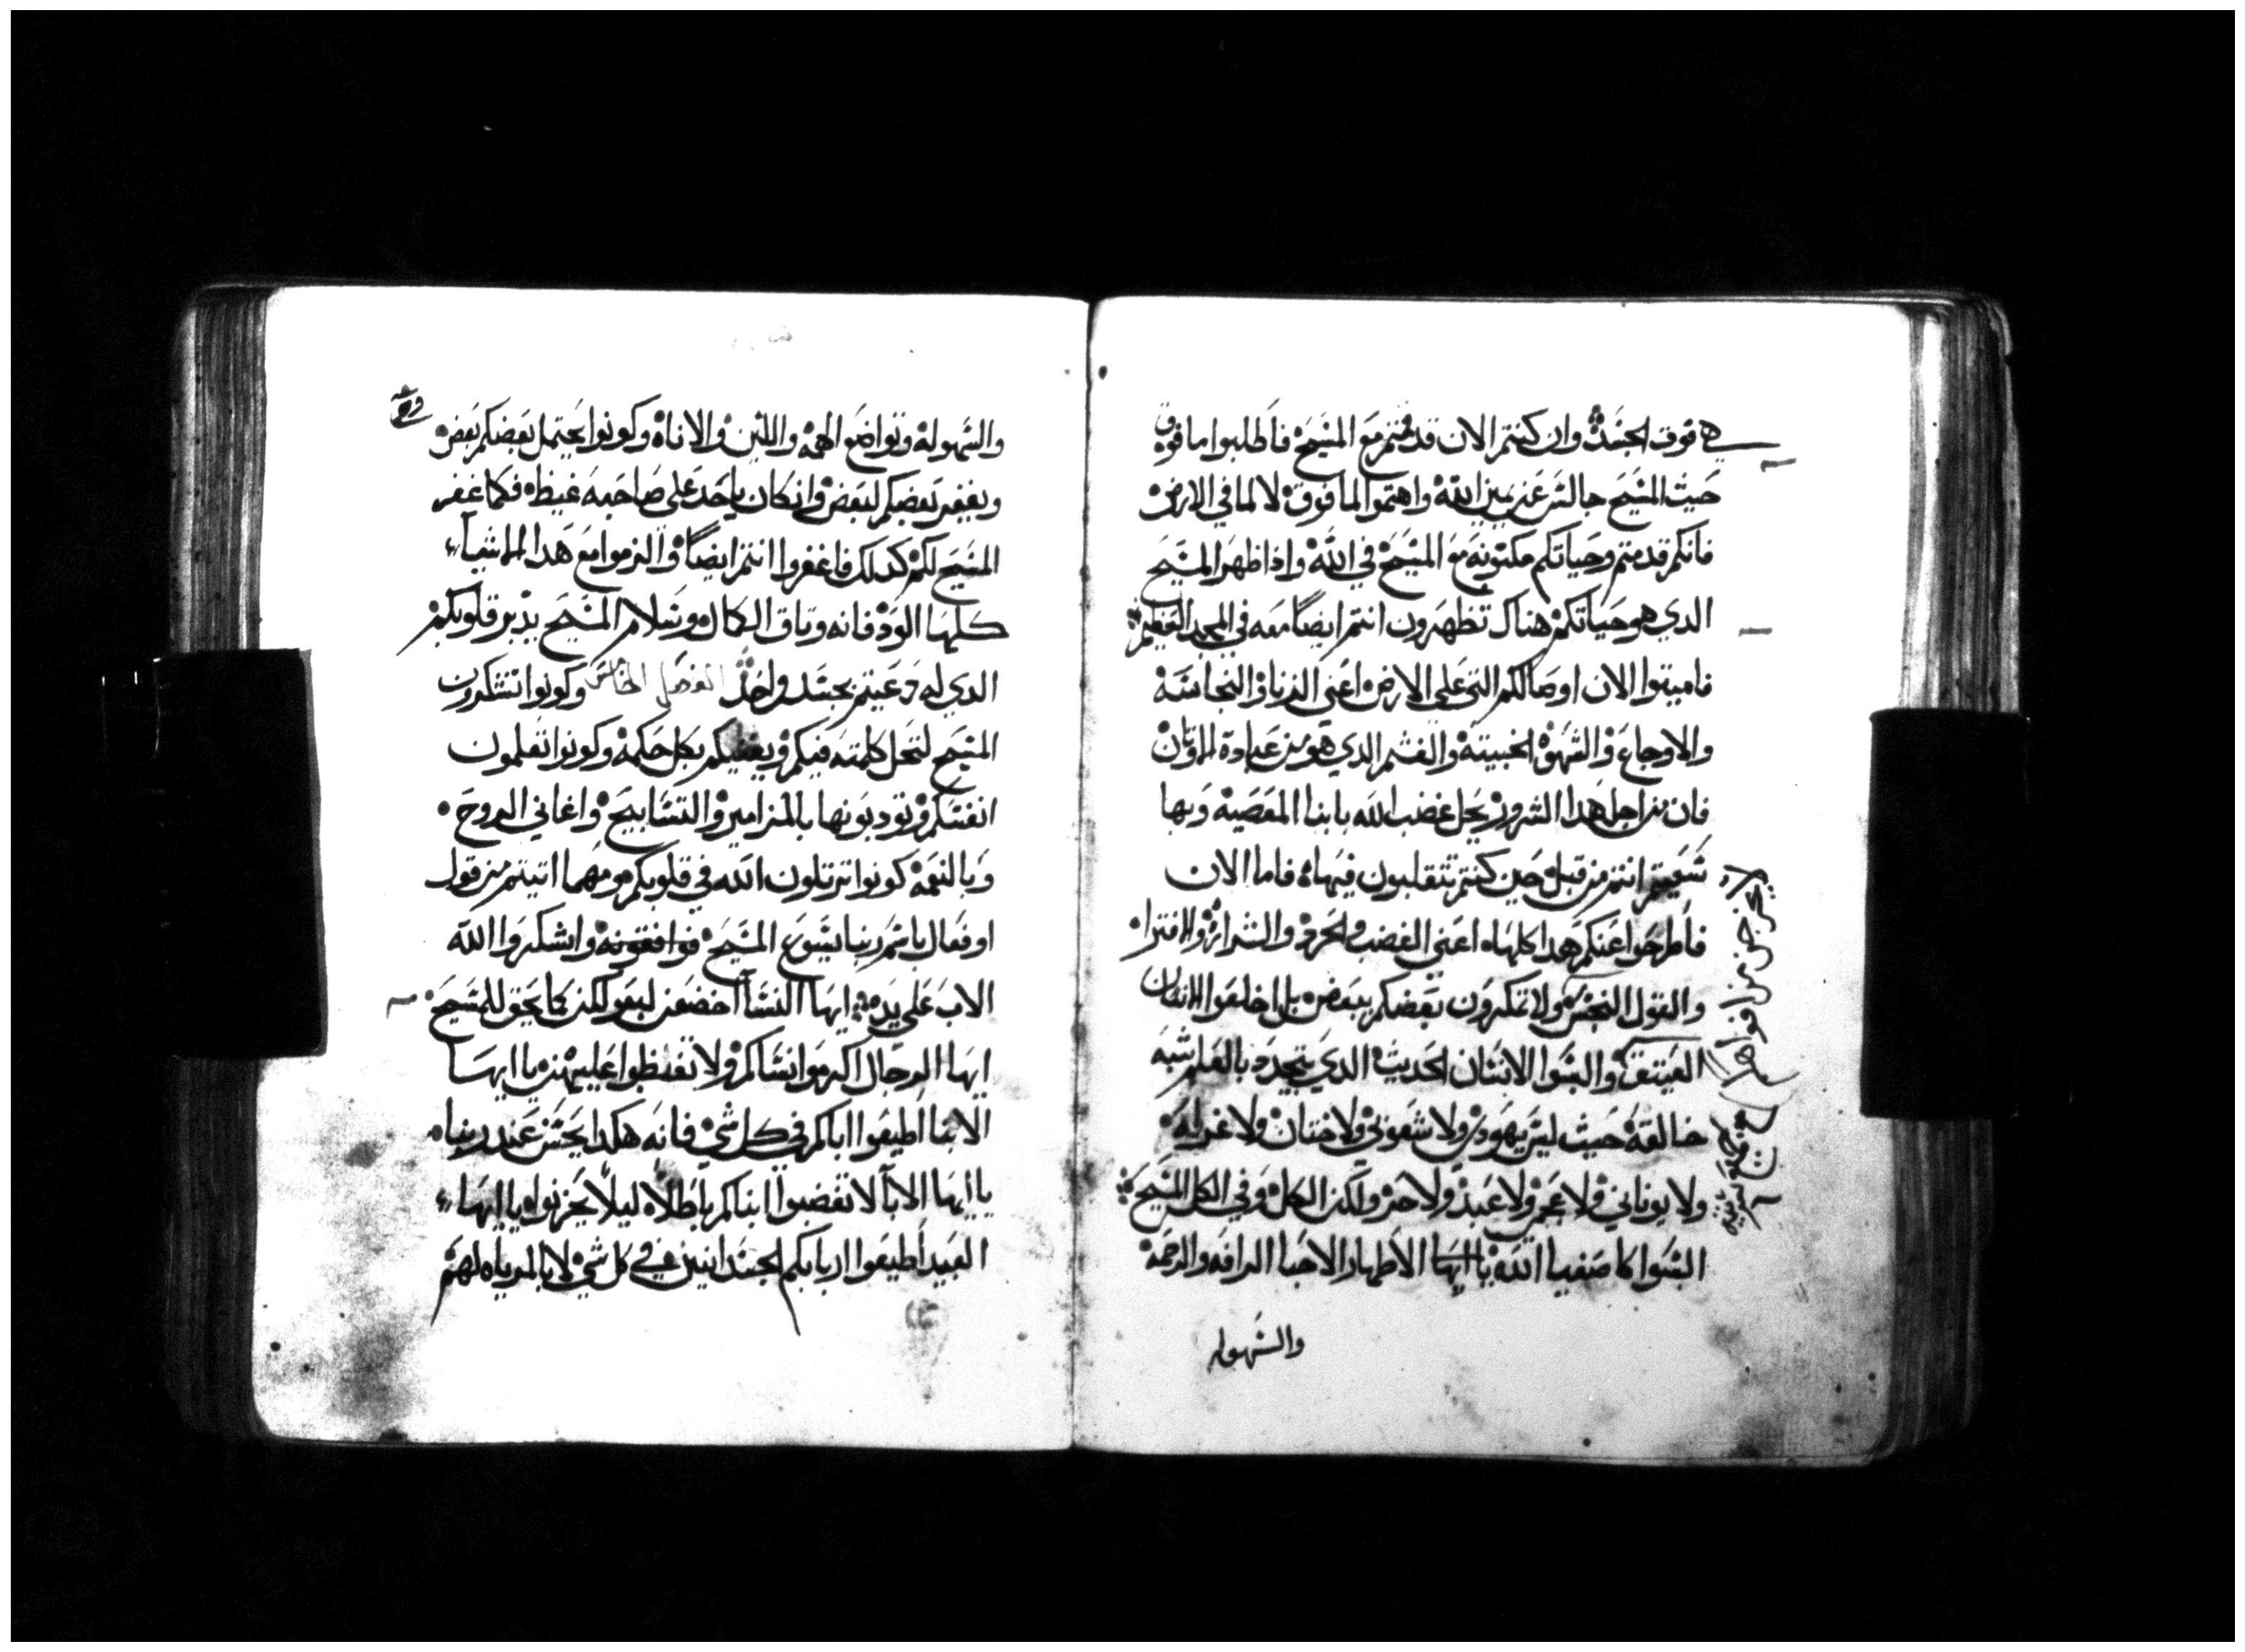 هي فوق الجسد وان كنتم الان قد قمتم مع المسيح فاطلبوا ما فوق
حيث المسيح جالس عن يمين الله واهتموا لما فوق لا لما في الارض
فانكم قد متم وحياتكم مكتومه مع المسيح في الله واذا ظهر المسيح
الدي هو حياتكم هناك تظهرون انتم ايضا معه في المجد العظيم
فاميتوا الان اوصالكم التي على الارض اعني الزنا والنجاسة
والاوجاع والشهوة الخبيثة والغشم الدي هو من عبادة الاوثان
فان من اجل هدا الشرور يحل غضب الله بابنا المعصية وبها
سعيتم انتم من قبل حين كنتم تتقلبون فيها فاما الان
فاطرحوا عنكم هدا كلها اعني الغضب والحرد والشرارة والافترا
والقول النجس ولا تمكرون بعضكم ببعض بل اخلعوا الانسان
العتيق والبسوا الانسان الحديث الدي يتجدد بالعلم شبه
خالقه حيث ليس يهودي ولا شعوبي ولا ختان ولا غرلة
ولا يوناني ولا عجم ولا عبد ولا حر ولكن الكل وفي الكل المسيح
البسوا كاصفيا الله يا ايها الاطهار الاحبا الرافه والرحمة
والسهوله
والسهولة وتواضع الهمة واللين والاناة وكونوا يحتمل بعضكم بعض
ويغفر بعضكم لبعض وان كان ياحد على صاحبه غيظا فكما غفر
المسيح لكم كدلك فاغفروا انتم ايضا والزموا مع هدا الاشيآء
كلها الود فانه وتاق الكمال وسلام المسيح يدبر قلوبكم
الدي له دعيتم بجسد واحد الفصل الخامس وكونوا تشكرون
المسيح لتحل كلمته فيكم ويغنيكم بكل حكمة وكونوا تعلمون
انفسكم وتودبونها بالمزامير والتسابيح واغاني الروح
وبالنعمة كونوا ترتلون الله في قلوبكم ومهما اتيتم من قول
او فعال باسم ربنا يسوع المسيح فوافقونه واشكروا الله
الاب على يده ايها النسآ اخضعن لبعولكن كما يحق للمسيح
ايها الرجال اكرموا نساكم ولا تغلظوا عليهن يا ايها
الابنا اطيعوا اباكم في كل شي فانه هكدا يحسن عند ربنا
يا ايها الابآ لا تغضبوا ابناكم باطلا ليلا يحزنوا يا ايها
العبيد اطيعوا اربابكم الجسدانيين في كل شي لا بالمرياه لهم